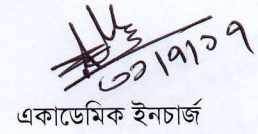 ৩০/৭/১৭
একাডেমিক ইনচার্জ